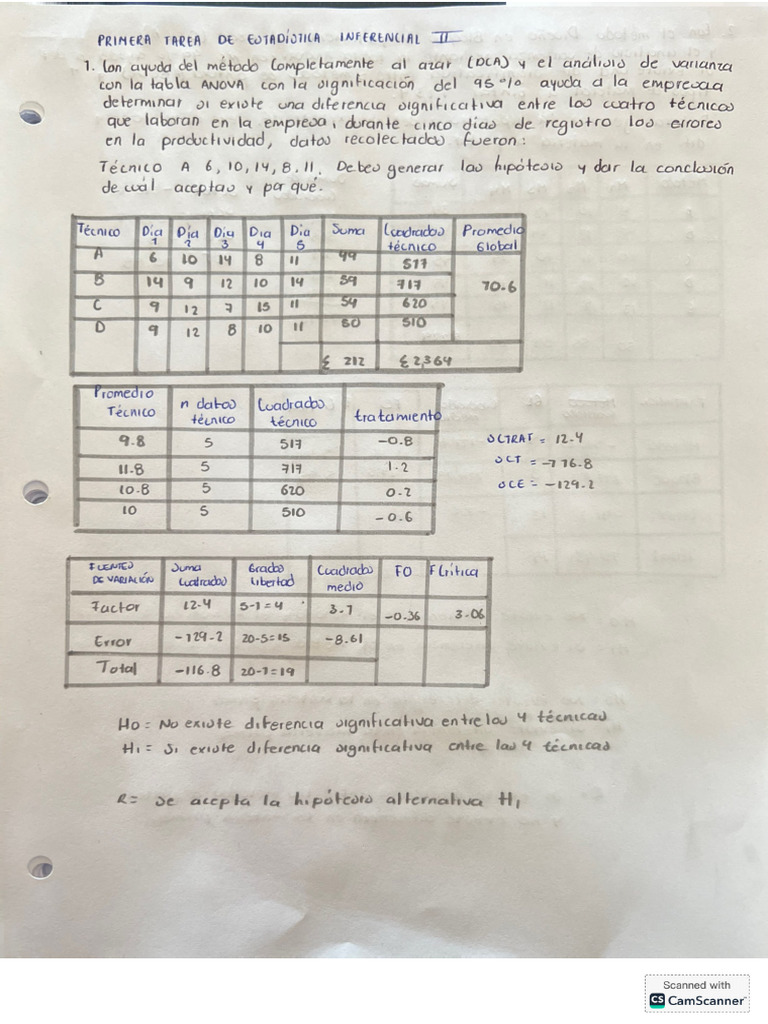 PRIMERA TAREA DE ESTADÍSTICA INFERENCIAL II
1. Con ayuda del método Completamente al azar (DCA) y el análisis de varianza
con la tabla ANOVA con la significación del 95% ayuda a la empresa a
determinar si existe una diferencia significativa entre los cuatro técnicos
que laboran en la empresa, durante cinco días de registro los errores
en la productividad, datos recolectados fueron:
Técnico A 6, 10, 14, 8, 11. Debes generar las hipótesis y dar la conclusión
de cuál aceptas y por qué.
Técnico Día 1 Día 2 Día 3 Dia 4 Dia 5 Suma Cuadrados técnico Promedio Global
A 6 10 14 8 11 49 517
B 14 9 12 10 14 59 717 70.6
C 9 12 7 15 11 54 620
D 9 12 8 10 11 50 510
Σ 212 Σ 2,364
Promedio Técnico n datos técnico Cuadrados técnico tratamiento
9.8 5 517 -0.8
11.8 5 717 1.2
10.8 5 620 0.2
10 5 510 -0.6
SCTRAT = 12.4
SCT = -776.8
SCE = -129.2
FUENTES DE VARIACIÓN Suma Cuadrados Grados libertad Cuadrados medio FO F Crítica
Factor 12.4 5-1=4 3.1 -0.36 3.06
Error -129.2 20-5=15 -8.61
Total -116.8 20-1=19
H0 = No existe diferencia significativa entre los 4 técnicas
H1 = Si existe diferencia significativa entre las 4 técnicas
R= Se acepta la hipótesis alternativa H1
Scanned with
CS CamScanner